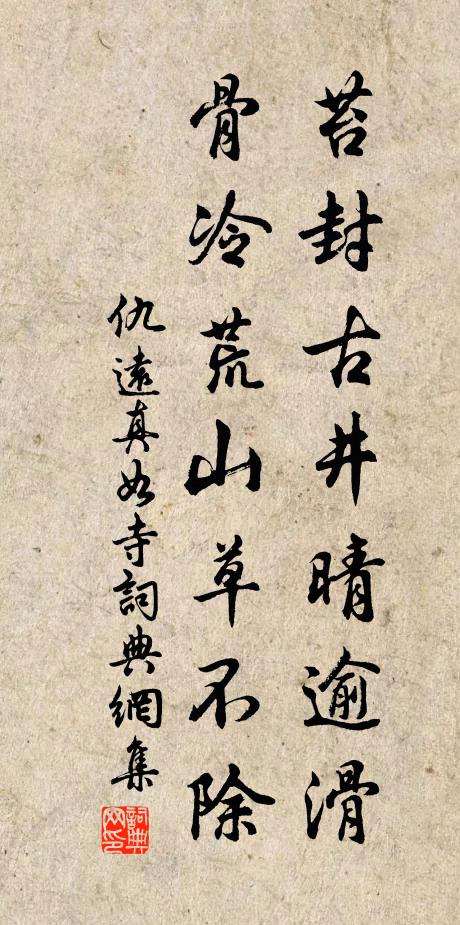 苔封古井晴逾滑
骨冷荒山草不除
仇遠真如寺詞典網集
詞典网印